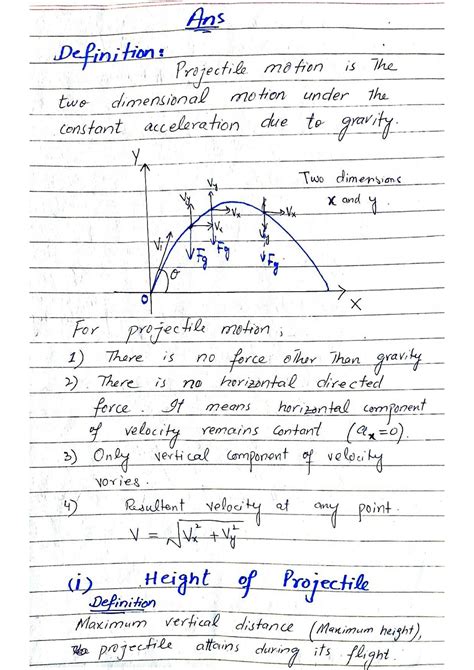 Ans
Definition:
Projectile motion is the
two dimensional motion under the
constant acceleration due to gravity.
Y
Two dimensions
x and y.
Vy
Vy
Vx
Vx
Vx
Vi
Vy
Fg
Fg
Fg
θ
O
X
For projectile motion;
1) There is no force other than gravity
2) There is no horizontal directed
force. It means horizontal component
of velocity remains contant (ax=0).
3) Only vertical component of velocity
vories.
4) Resultent velocity at any point.
V = √Vx² + Vy²
(i) Height of Projectile
Definition
Maximum vertical distance (Maximum height),
projectile attains during its flight.